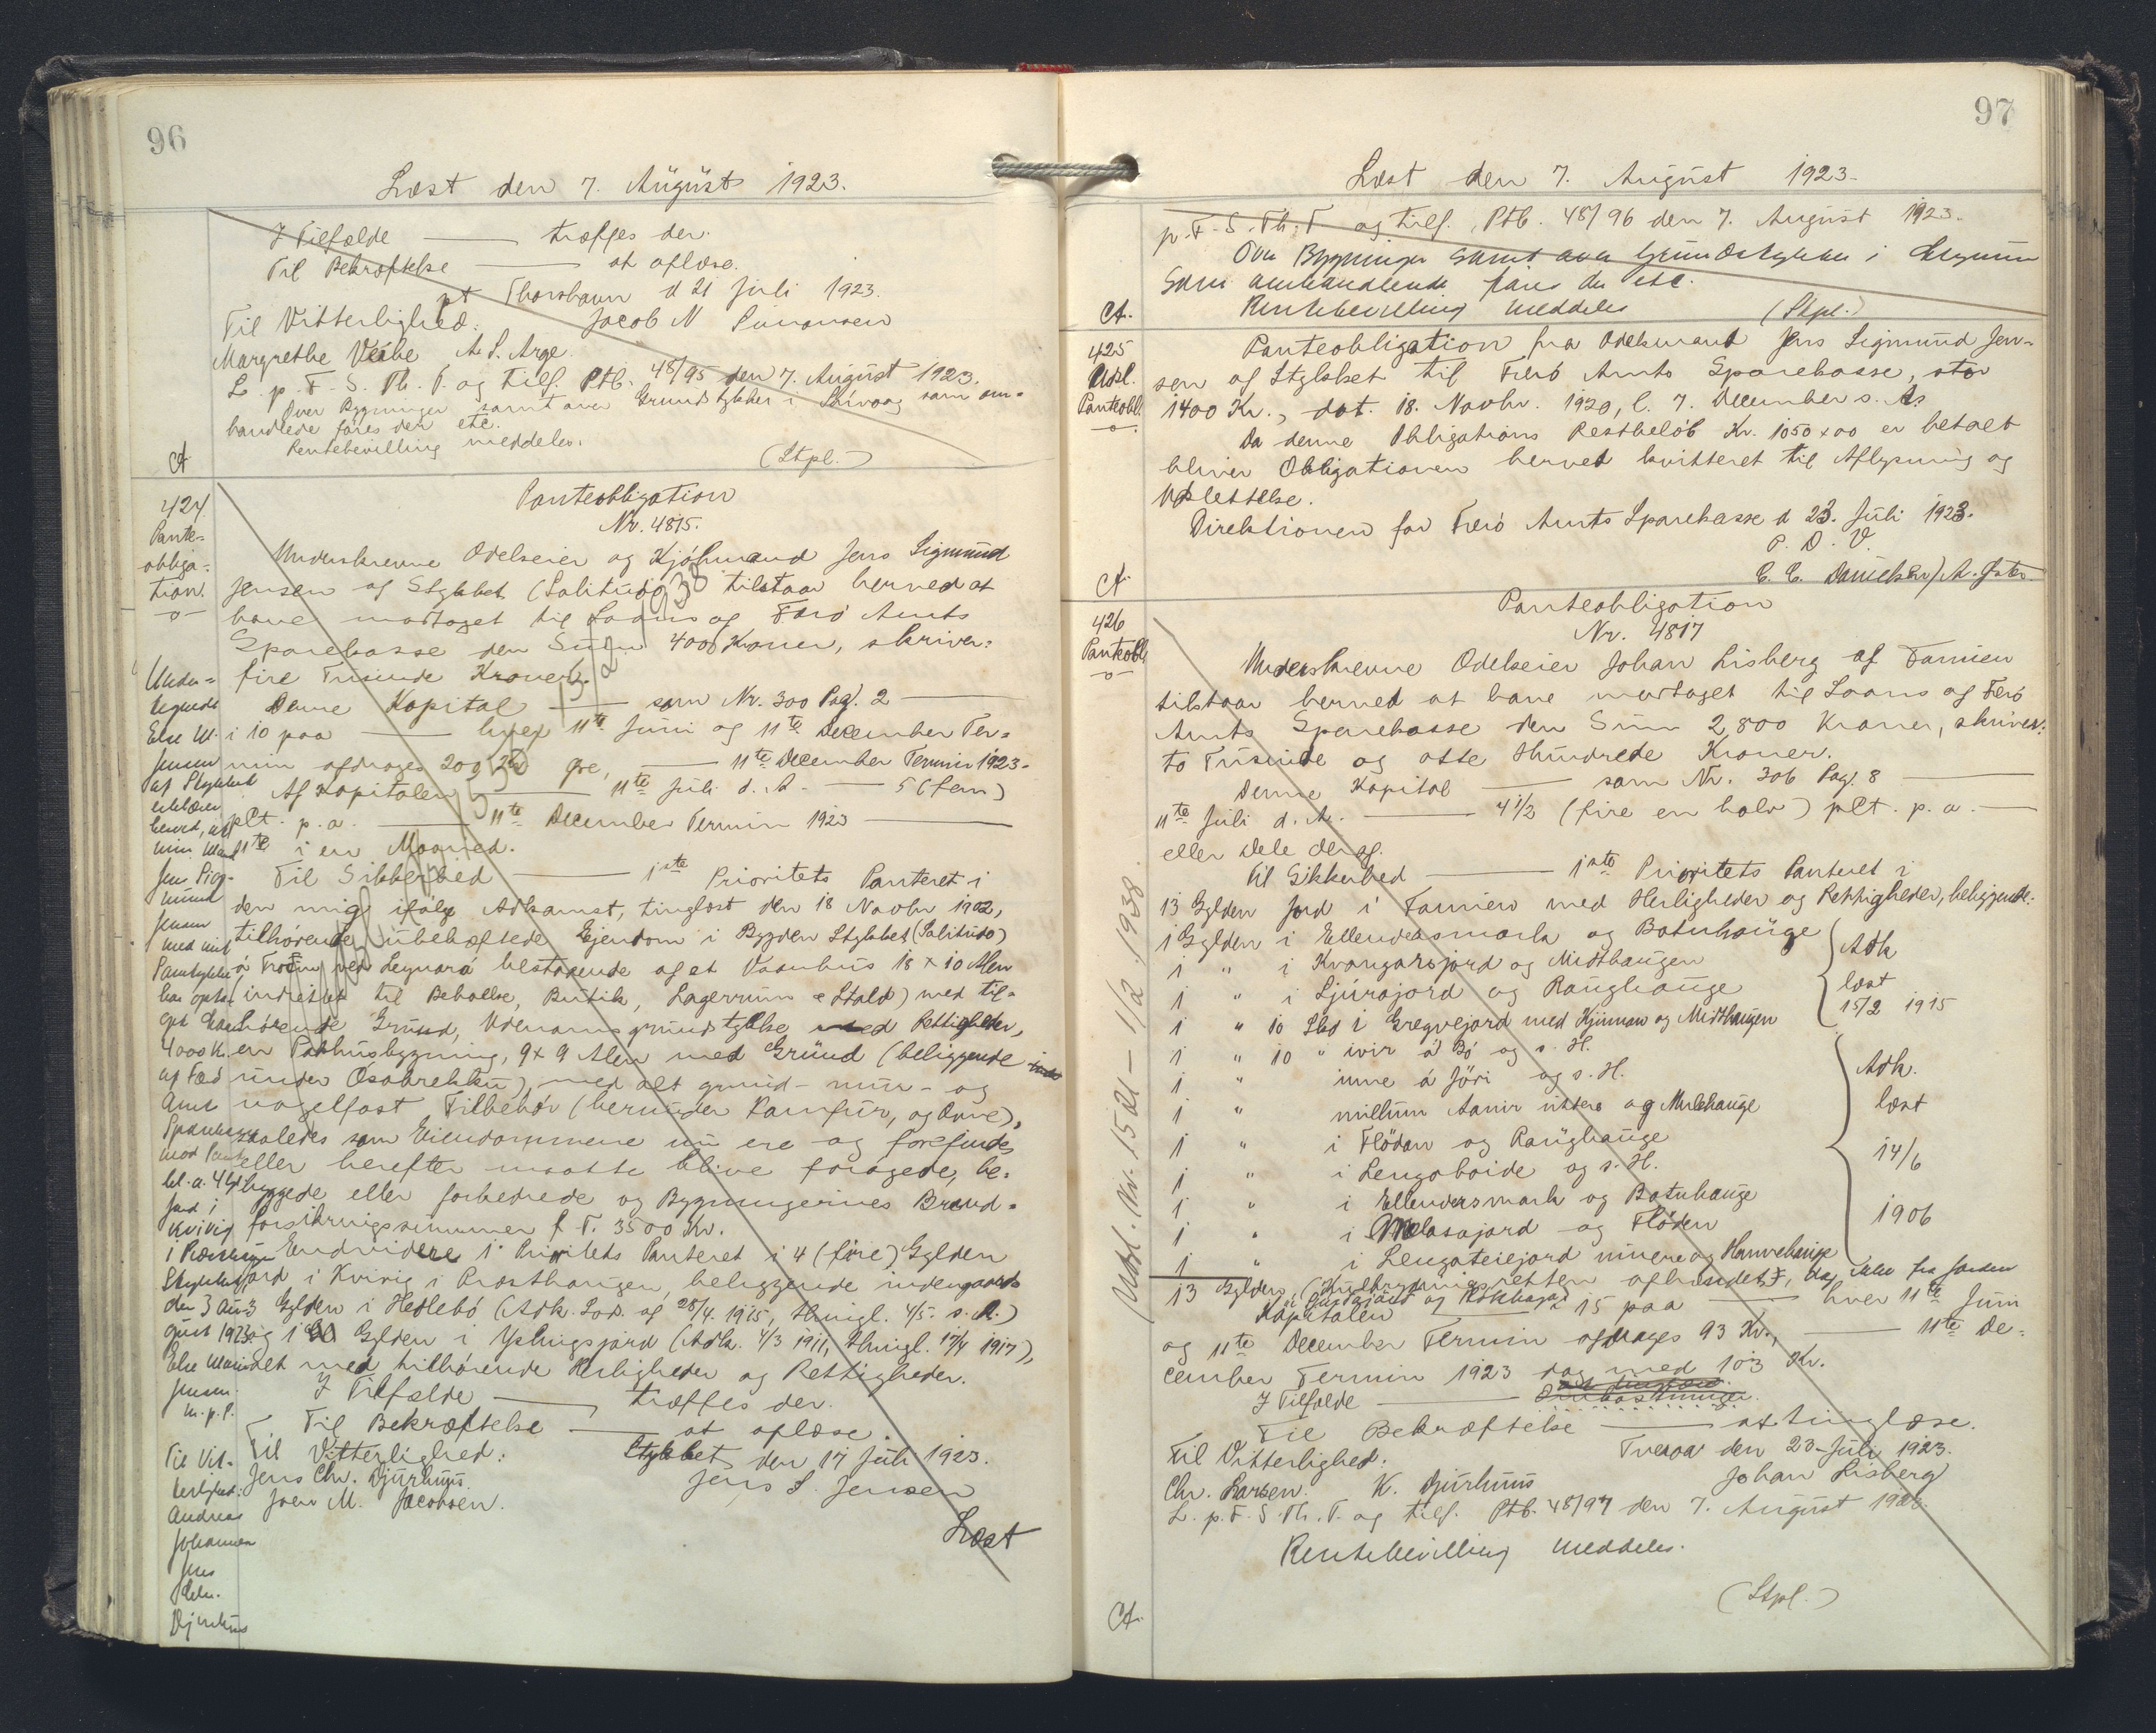 96
Læst den 7. August 1923.
I Tilfælde — træffes der.
Til Bekræftelse — at aflæse.
pt Thorshavn d 21 Juli 1923.
Til Vitterlighed: Jacob N
Margrethe A. S. Arge.
L. p. F. S. Th. T. og tilf. Ptb. 48/95 den 7. August 1923.
Over Bygninger samt over Grundstykker i Sårvaag som om-
handlede føres der etc.
Rentebevilling meddeles.
(Stpl.)
424
Pante-
obliga-
tion.
Panteobligation
Nr. 4815.
Underskrevne Odelseier og Kjøbmand Jens Sigmund
Jensen af Stykket (Solitudo) tilstaar herved at
have modtaget til Laans af Færø Amts
Sparekasse den Sum 4000 Kroner, skriver:
fire Tusinde Kroner.
Denne Kapital — som Nr. 300 Pag. 2 —
i 10 paa — hver 11te Juni og 11te December Ter-
min afdrages 200 Øre, — 11te December Termin 1923 –
Af Kapitalen — 11te Juli d. A. — 5 (fem)
pCt. p. a. — 11te December Termin 1923 —
1te i en Maaned.
Til Sikkerhed — 1ste Prioritets Panteret i
den mig ifølge Adkomst, tinglæst den 18 Novbr 1902,
tilhørende übehæftede Ejendom i Bygden Stykket (Solitudo)
á Tröum ved Leynará bestaaende af et Vaanhus 18 x 10 Alen
(indrettet til Beboelse, Butik, Lagerrum & Stald) med til-
hørende Grund, Udenomsgrundstykke med Rettigheder,
en Pakhusbygning, 9 x 9 Alen med Grund (beliggende
under Osabrekku), med alt grund- mur- og
nagelfast Tilbehør (herunder Komfur, og Ovne),
saaledes som Eiendommene nu ere og forefindes
eller herefter maatte blive forøgede, be-
byggede eller forbedrede og Bygningernes Brand-
forsikringssummer f. T. 3500 Kr.
Endvidere 1' Prioritets Panteret i 4 (fire) Gylden
Jord i Kvivig i Præsthaugen, beliggende indengaards
3 Gylden i Hedlebø (Adk. Lod. af 28/4. 1915, thingl. 4/5. s. A.)
og 1 Gylden i Yslingsjørd (Adk. 4/3 1911, thingl. 17/4 1917),
alt med tilhørende Herligheder og Rettigheder.
I Tilfælde — træffes der.
Til Bekræftelse — at aflæse.
Til Vitterlighed: Stykket den 17 Juli 1923.
Jens Chr. Djurhuus. Jens S. Jensen
Joen M. Jacobsen.
Læst
Under-
tegnede
Else M.
Jensen
af Stykket
erklærer
herved, at
min Mand
Jens Sig-
mund
Jensen
med mit
Samtykke
har opta-
get Laan
4000 Kr.
af Færø
Amts
Sparekasse
mod Pant
bl. a. 4 Gl
Jord i
Kvivig
i Præsthaugen
Stykket
den 3 Au-
gust 1923
Else Marie
Jensen.
m. p. P.
Til Vit-
terlighed:
Andreas
Johannesen
Jens
Djurhuus
97
Læst den 7. August 1923.
p. F. S. Th. T. og tilf. Ptb. 48/96 den 7. August 1923.
Over Bygninger samt over Grundstykker i Leynum
som omhandlende føres der etc.
Rentebevilling meddeles (Stpl.)
425
Udsl.
Panteobl.
Panteobligation fra Odelsmand Jens Sigmund Jen-
sen af Stykket til Færø Amts Sparekasse, stor
1400 Kr., dat. 18. Novbr. 1920, l. 7. December s. A.
Da denne Obligations Restbeløb Kr. 1050 x 00 er betalt
bliver Obligationen herved kvitteret til Aflysning og
Udslettelse.
Direktionen for Færø Amts Sparekasse d 23. Juli 1923.
P. D. V.
C. C. Danielsen / A.
426
Panteobl.
Panteobligation
Nr. 4817
Underskrevne Odelseier Johan Lisberg af Famien
tilstaar herved at have modtaget til Laans af Færø
Amts Sparekasse den Sum 2,800 Kroner, skriver:
to Tusinde og otte Hundrede Kroner.
Denne Kapital — som Nr. 306 Pag. 8 —
11te Juli d. A. — 4 1/2 (fire en halv) pCt. p. a. —
eller Dele deraf.
Til Sikkerhed — 1ste Prioritets Panteret i
13 Gylden Jord i Famien med Herligheder og Rettigheder, beliggende:
1 Gylden i Ellendersmark og Botnhauge
1 " i Kvangarsjord og Midthaugen
1 " i Ljurajord og Ranghauge
1 " 10 Sks i Gregvejord med Kjinnan og Midthaugen
Adk
læst
15/2 1915
1 " 10 " ivir á Bø og s. H.
1 " inne á Jøri og s. H.
1 " millum Aanir uttere og Mulehauge
1 " i Flødan og Ranghauge
1 " i Lengoboide og s. H.
1 " i Ellendersmark og Botnhauge
1 " i Melasajord og Fløden
1 " i Lengateiejord innere og Hamrehauge
Adk.
læst
14/6
1906
13 Gylden (Kulbrydningsretten afhændet, dog ikke fra Jorden
Kapitalen — 15 paa — hver 11te Juni
og 11te December Termin afdrages 93 Kr., — 11te De-
cember Termin 1923 dog med 103 Kr.
I Tilfælde — Omkostninger.
Til Bekræftelse — at tinglæse.
Til Vitterlighed: Tveraa den 23 Juli 1923.
Chr. Larsen. K. Djurhuus Johan Lisberg
L. p. F. S. Th. T. og tilf. Ptb. 48/97 den 7. August 1923.
Rentebevilling meddeles.
(Stpl.)
Udsl. Nr. 15 21 – 1/2 1938.